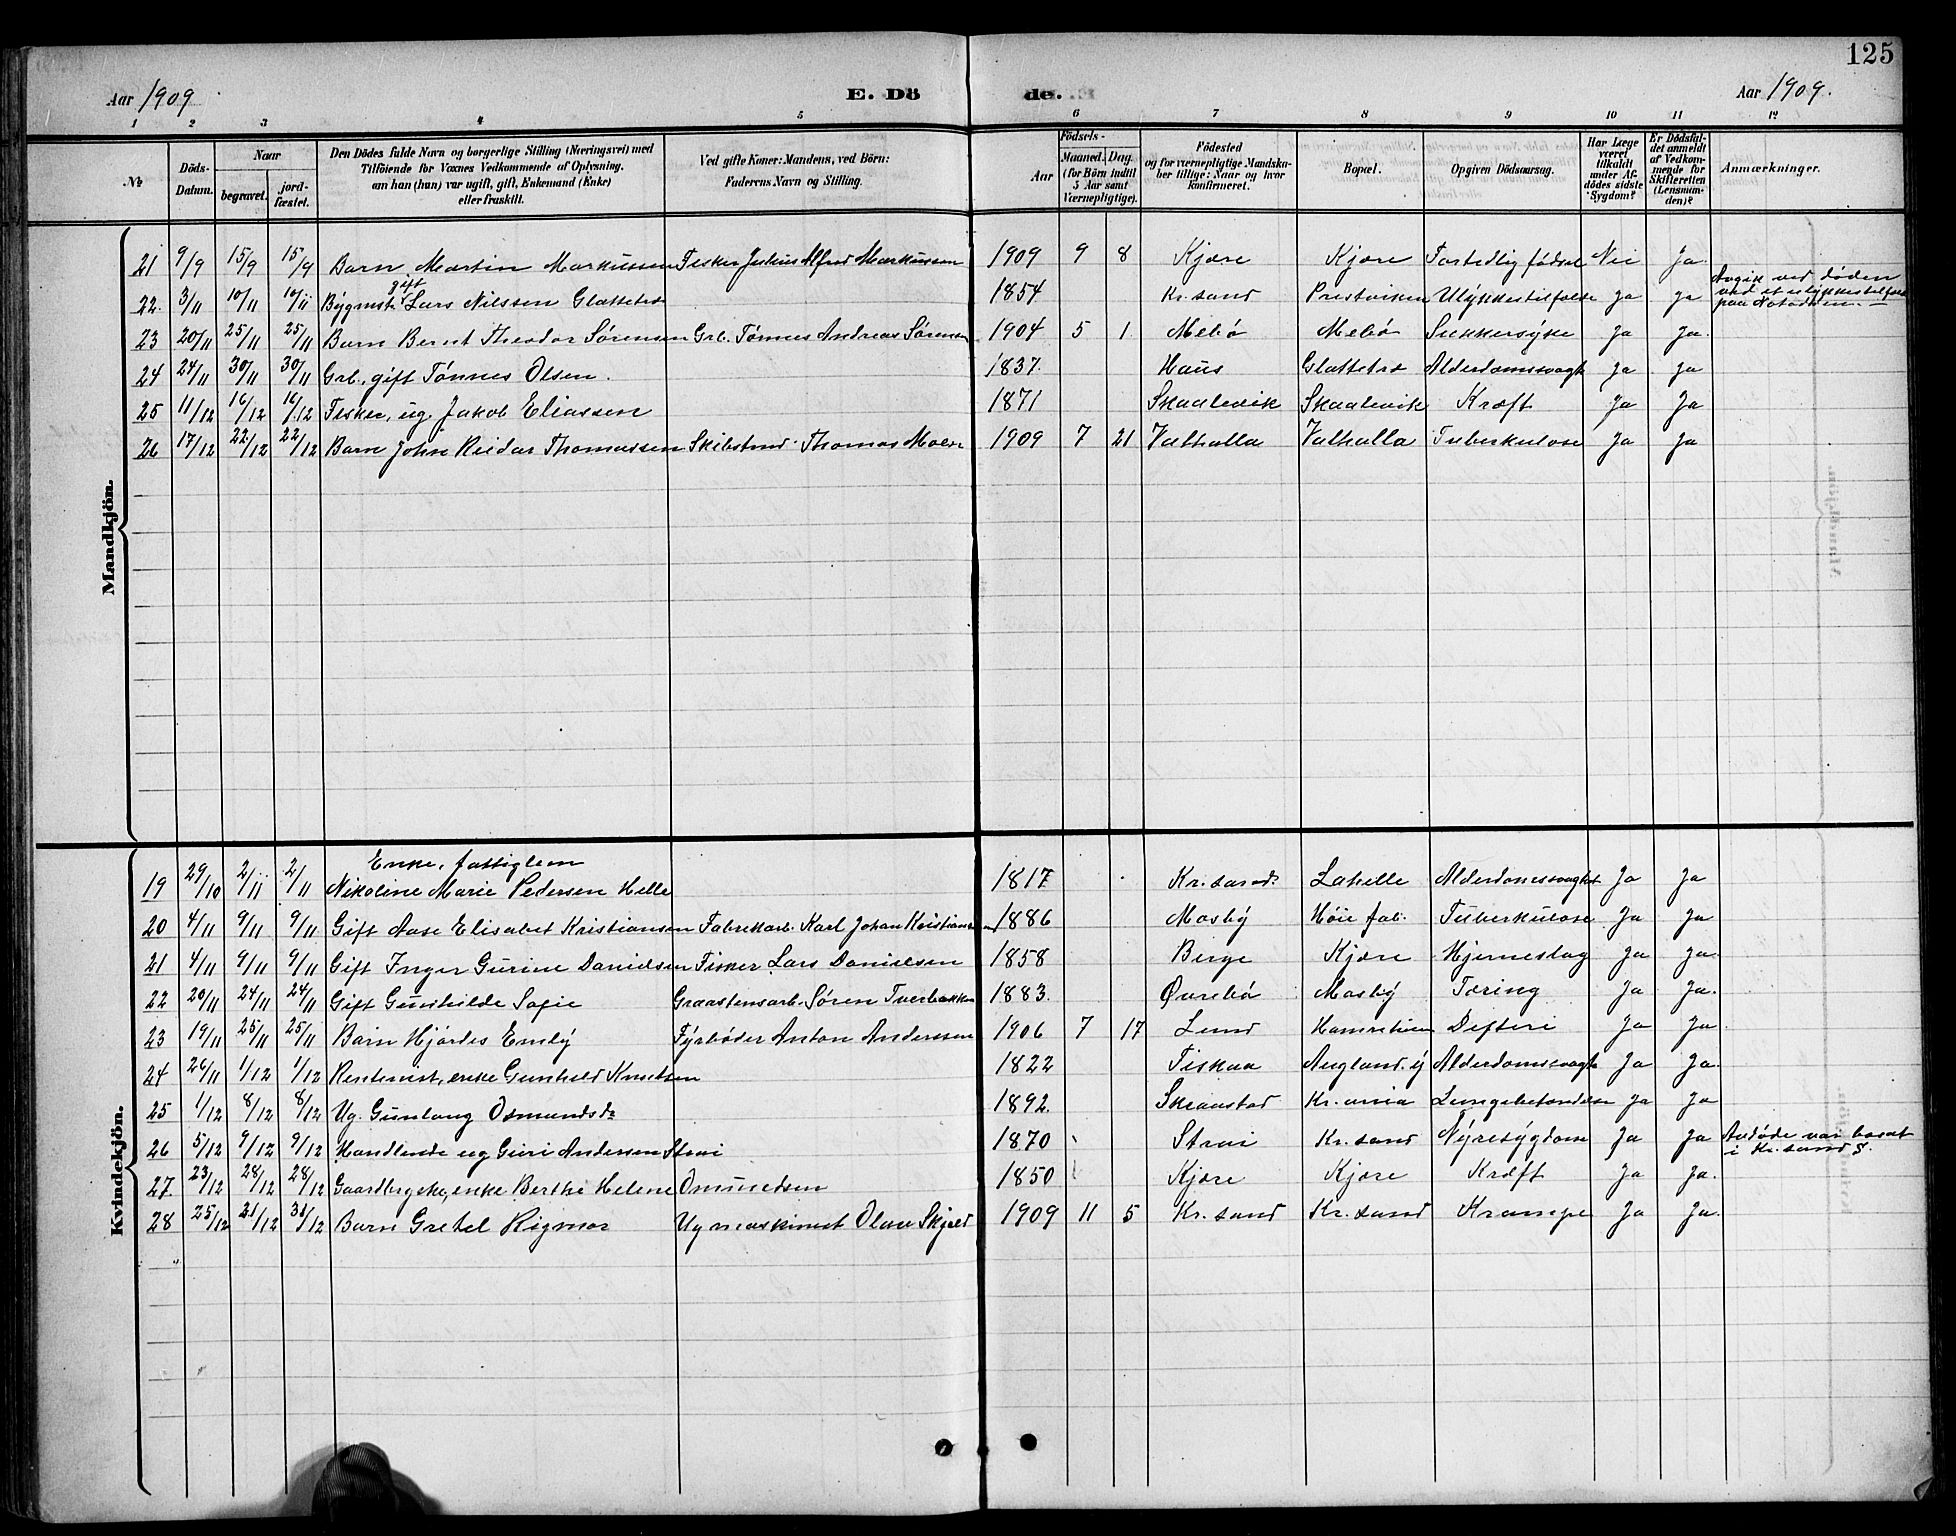 125
Aar 1909
E. Dö de.
Aar 1909.
1 2 3 4 5 6 7 8 9 10 11 12
№
Döds-Datum.
Naar
begravet.
jord-fæstet.
Den Dödes fulde Navn og borgerlige Stilling (Næringsvei) med
Tilföiende for Voxnes Vedkommende af Oplysning,
om han (hun) var ugift, gift, Enkemand (Enke)
eller fraskilt.
Ved gifte Koner: Mandens, ved Börn:
Faderens Navn og Stilling.
Födsels-
Aar
Maaned. Dag.
(for Börn indtil
5 Aar samt
Værnepligtige).
Födested
og for værnepligtige Mandska-
ber tillige: Naar og hvor
konfirmeret.
Bopæl.
Opgiven Dödsaarsag.
Har Læge
været
tilkaldt
under Af-
dödes sidste
Sygdom?
Er Dödsfal-
det anmeldt
af Vedkom-
mende for
Skifteretten
(Lensman-
den)?
Anmærkninger.
Mandkjön.
21 9/9 15/9 15/9 Barn Martin Markussen Fisker Julius Alfred Markussen 1909 9 8 Kjære Kjære Fortidlig fødsel Nei Ja
22. 3/11 10/11 10/11 Bygmstr. gift Lars Nilssen Glattetre 1854 Kr.sand Prestviken Ulykkestilfelde Ja ja Avgik ved døden
ved et ulykkestilfelde
paa Notodden. —
23 20/11 25/11 25/11 Barn Bernt Theodor Sørensen Grb. Tønnes Andreas Sørensen 1904 5 1 Mebø Mebø Sukkersyke Ja Ja.
24 24/11 30/11 30/11 Grb., gift Tønnes Olsen. 1837. Haus Glattetre Alderdomssvagh Ja Ja
25 11/12 16/12 16/12 Fisker, ug. Jakob Eliassen 1871 Skaalevik Skaalevik Kræft Ja Ja
26 17/12 22/12 22/12 Barn John Reidar Thomassen Skibstmd. Thomas Moen 1909 7 21 Valhalla Valhalla Tuberkulose Ja Ja
Kvindekjön.
Enke, fattiglem
19 29/10 2/11 2/11 Nikoline Marie Pedersen Helle 1817 Kr.sand. Lahelle Alderdomssvaght Ja Ja
20 4/11 9/11 9/11 Gift Aase Elisabet Kristiansen Fabrikarb. Karl Johan Kristiansen 1886 Mosby Høie fab. Tuberkulose Ja Ja
21 4/11 9/11 9/11 Gift Inger Gurine Danielsen Fisker Lars Danielsen 1858 Berge Kjære Hjerneslag Ja Ja.
22 20/11 24/11 24/11 Gift Gunhilde Sofie Graastensarb. Søren Tverbakken 1883. Øvrebø Mosby Tæring Ja Ja.
23 19/11 25/11 25/11 Barn Hjørdis Emly Fyrbøder Anton Anderssen 1906 7 17 Lund Difteri Ja Ja
24 26/11 1/12 1/12 Rentenist, enke Gunhild Knutsen 1822 Fiskaa Augland. y Alderdomssvagh Ja Ja.
25 1/12 8/12 8/12 Ug. Gunlaug Osmundsd. 1892. Skraastad Kr.ania Lungebetændelse Ja Ja
26 5/12 9/12 9/12 Handlende ug Guri Andersen Strai 1870 Strai Kr.sand Nyresygdom Ja Ja Avdøde var bosat
i Kr.sand S.
27. 23/12 28/12 28/12 Gaardbrgske, enke Berthe Helene Omundsen 1850 Kjære Kjære Kræft Ja Ja.
28 25/12 31/12 31/12 Barn Gretel Rigmor Ug maskinist Olav Skjeld 1909 11 5 Kr.sand Kr.sand Krampe Ja Ja.